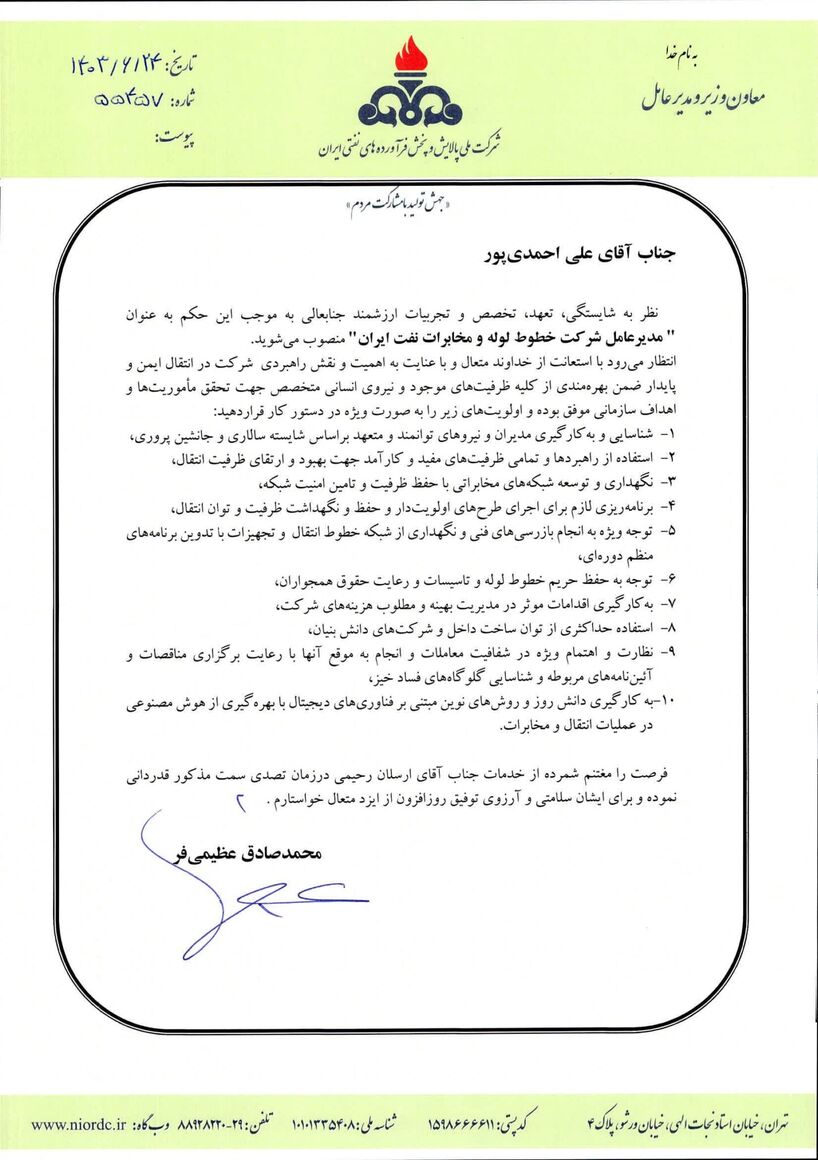 به نام خدا
معاون وزیر و مدیرعامل
شرکت ملی پالایش و پخش فرآورده های نفتی ایران
تاریخ: ۱۴۰۳/۶/۲۴
شماره: ۵۵۴۵۷
پیوست:
«جهش تولید با مشارکت مردم»
جناب آقای علی احمدی‌پور
نظر به شایستگی، تعهد، تخصص و تجربیات ارزشمند جنابعالی به موجب این حکم به عنوان
"مدیرعامل شرکت خطوط لوله و مخابرات نفت ایران" منصوب می‌شوید.
انتظار می‌رود با استعانت از خداوند متعال و با عنایت به اهمیت و نقش راهبردی شرکت در انتقال ایمن و
پایدار ضمن بهره‌مندی از کلیه ظرفیت‌های موجود و نیروی انسانی متخصص جهت تحقق مأموریت‌ها و
اهداف سازمانی موفق بوده و اولویت‌های زیر را به صورت ویژه در دستور کار قراردهید:
۱- شناسایی و به‌کارگیری مدیران و نیروهای توانمند و متعهد براساس شایسته سالاری و جانشین پروری،
۲- استفاده از راهبردها و تمامی ظرفیت‌های مفید و کارآمد جهت بهبود و ارتقای ظرفیت انتقال،
۳- نگهداری و توسعه شبکه‌های مخابراتی با حفظ ظرفیت و تامین امنیت شبکه،
۴- برنامه‌ریزی لازم برای اجرای طرح‌های اولویت‌دار و حفظ و نگهداشت ظرفیت و توان انتقال،
۵- توجه ویژه به انجام بازرسی‌های فنی و نگهداری از شبکه خطوط انتقال و تجهیزات با تدوین برنامه‌های
منظم دوره‌ای،
۶- توجه به حفظ حریم خطوط لوله و تاسیسات و رعایت حقوق همجواران،
۷- به‌کارگیری اقدامات موثر در مدیریت بهینه و مطلوب هزینه‌های شرکت،
۸- استفاده حداکثری از توان ساخت داخل و شرکت‌های دانش بنیان،
۹- نظارت و اهتمام ویژه در شفافیت معاملات و انجام به موقع آنها با رعایت برگزاری مناقصات و
آئین‌نامه‌های مربوطه و شناسایی گلوگاه‌های فساد خیز،
۱۰-به کارگیری دانش روز و روش‌های نوین مبتنی بر فناوری‌های دیجیتال با بهره‌گیری از هوش مصنوعی
در عملیات انتقال و مخابرات.
فرصت را مغتنم شمرده از خدمات جناب آقای ارسلان رحیمی درزمان تصدی سمت مذکور قدردانی
نموده و برای ایشان سلامتی و آرزوی توفیق روزافزون از ایزد متعال خواستارم .
محمدصادق عظیمی‌فر
تهران، خیابان استاد نجات الهی، خیابان ورشو، پلاک ۴ کدپستی: ۱۵۹۸۶۶۶۶۱۱ شناسه ملی: ۱۰۱۰۱۳۳۵۴۰۸ تلفن: ۲۹-۸۸۹۲۸۲۲۰ وب‌گاه: www.niordc.ir